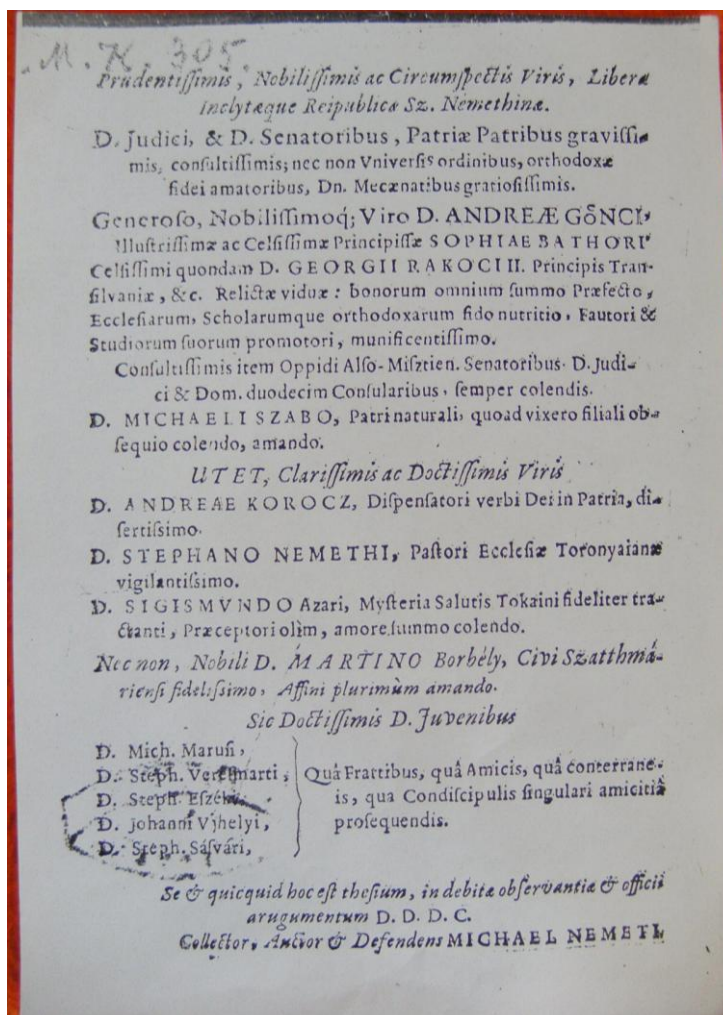 M. K. 305.
Prudentiſſimis, Nobiliſſimis ac Circumſpectis Viris, Liberæ
Inclytæque Reipublicæ Sz. Némethinæ.
D. Judici, & D. Senatoribus, Patriæ Patribus graviſſi-
mis, conſultiſſimis; nec non Vniverſis ordinibus, orthodoxæ
fidei amatoribus, Dn. Mecænatibus gratioſiſſimis.
Generoſo, Nobiliſſimoq́; Viro D. ANDREÆ GÖNCI,
Illuſtriſſimæ ac Celſiſſimæ Principiſſæ SOPHIAE BATHORI
Celſiſſimi quondam D. GEORGII RAKOCI II. Principis Tran-
ſilvaniæ, &c. Relictæ viduæ: bonorum omnium ſummo Præfecto,
Eccleſiarum, Scholarumque orthodoxarum fido nutritio, Fautori &
Studiorum ſuorum promotori, munificentiſſimo.
Conſultiſſimis item Oppidi Alſo-Miſztien. Senatoribus. D. Judi-
ci & Dom. duodecim Conſularibus, ſemper colendis.
D. MICHAELI SZABO, Patri naturali, quoad vixero filiali ob-
ſequio colendo, amando.
UTET, Clariſſimis ac Doctiſſimis Viris
D. ANDREAE KOROCZ, Diſpenſatori verbi Dei in Patria, di-
ſertiſſimo.
D. STEPHANO NEMETHI, Paſtori Eccleſiæ Toronyaianæ
vigilantiſſimo.
D. SIGISMVNDO Azari, Myſteria Salutis Tokaini fideliter tra-
ctanti, Præceptori olìm, amore ſummo colendo.
Nec non, Nobili D. MARTINO Borbély, Civi Szatthmá-
rienſi fideliſſimo, Affini plurimùm amando.
Sic Doctiſſimis D. Juvenibus
D. Mich. Maruſi,
D. Steph. Veresmarti,
D. Steph. Eſzéki,
D. Johanni Vjhelyi,
D. Steph. Sáſvári,
Quâ Frattibus, quâ Amicis, quâ conterrane-
is, qua Condiſcipulis ſingulari amicitiâ
proſequendis.
Se & quicquid hoc eſt theſium, in debitæ obſervantiæ & officii
arugumentum D. D. D. C.
Collector, Auctor & Defendens MICHAEL NEMETI.